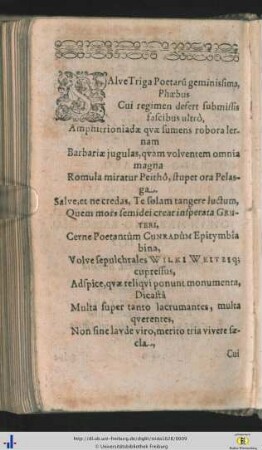 SAlve Triga Poetarũ geminissima,
Phœbus
Cui regimen defert submissis
fascibus ultrò,
Amphitrioniadæ qvæ sumens robora ler-
nam
Barbariæ jugulas, qvam volventem omnia
magna
Romula miratur Peithô, stupet ora Pelas-
ga.
Salve, et ne credas, Te solam tangere luctum,
Quem mors semidei creat insperata GRU-
TERI,
Cerne Poetantûm CUNRADÛM Epitymbia
bina,
Volve sepulchrales WILKI WEITZIQ;
cupressus,
Adspice, qvæ reliqvi ponunt monumenta,
Dicastâ
Multa super tanto lacrumantes, multa
qverentes,
Non sine laude viro, merito tria vivere sæ-
cla.
Cui
http://dl.ub.uni-freiburg.de/diglit/
© Universitätsbibliothek Freiburg